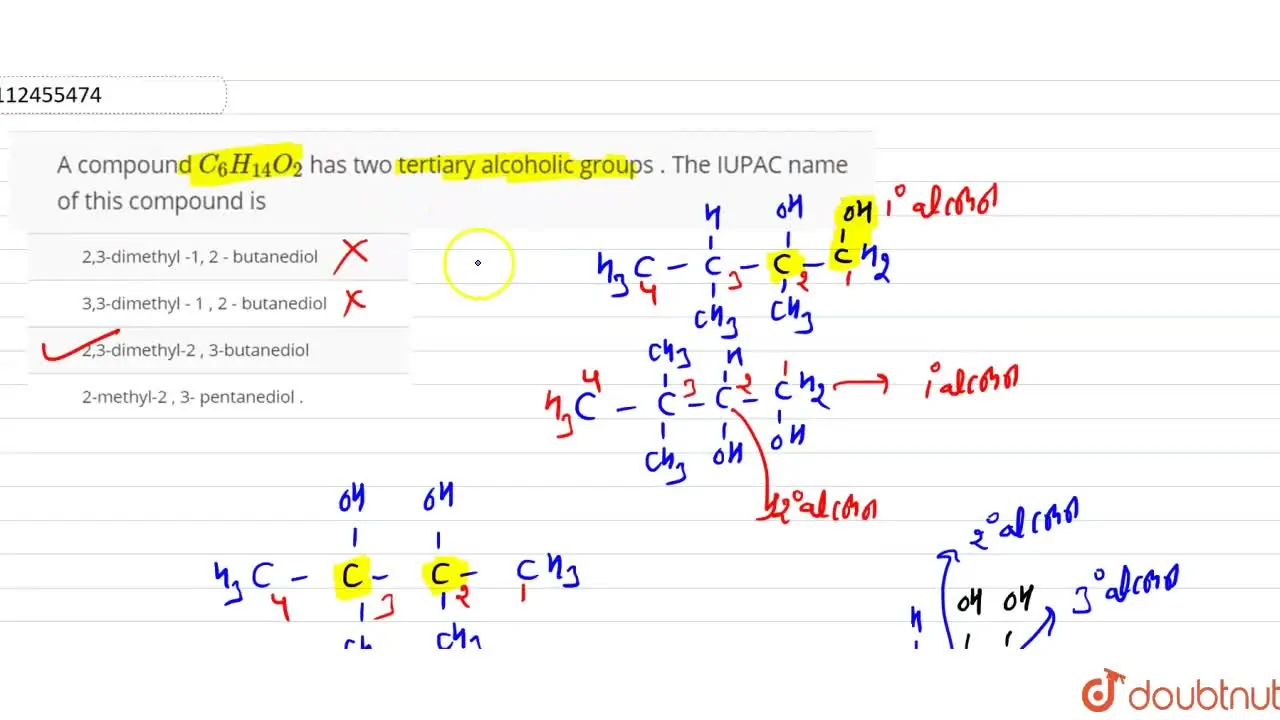 112455474
A compound C₆H₁₄O₂ has two tertiary alcoholic groups . The IUPAC name
of this compound is
2,3-dimethyl -1, 2 - butanediol
3,3-dimethyl - 1 , 2 - butanediol
2,3-dimethyl-2 , 3-butanediol
2-methyl-2 , 3- pentanediol .
H OH OH 1° alcohol
H₃C - C - C - C H₂
4 3 2 1
CH₃ CH₃
CH₃ H
4 3 2 1
H₃C - C - C - C H₂ → 1° alcohol
CH₃ OH OH
2° alcohol
OH OH
H₃C - C - C - C H₃
4 3 2 1
CH₃
2° alcohol
OH OH 3° alcohol
H
doubtnut